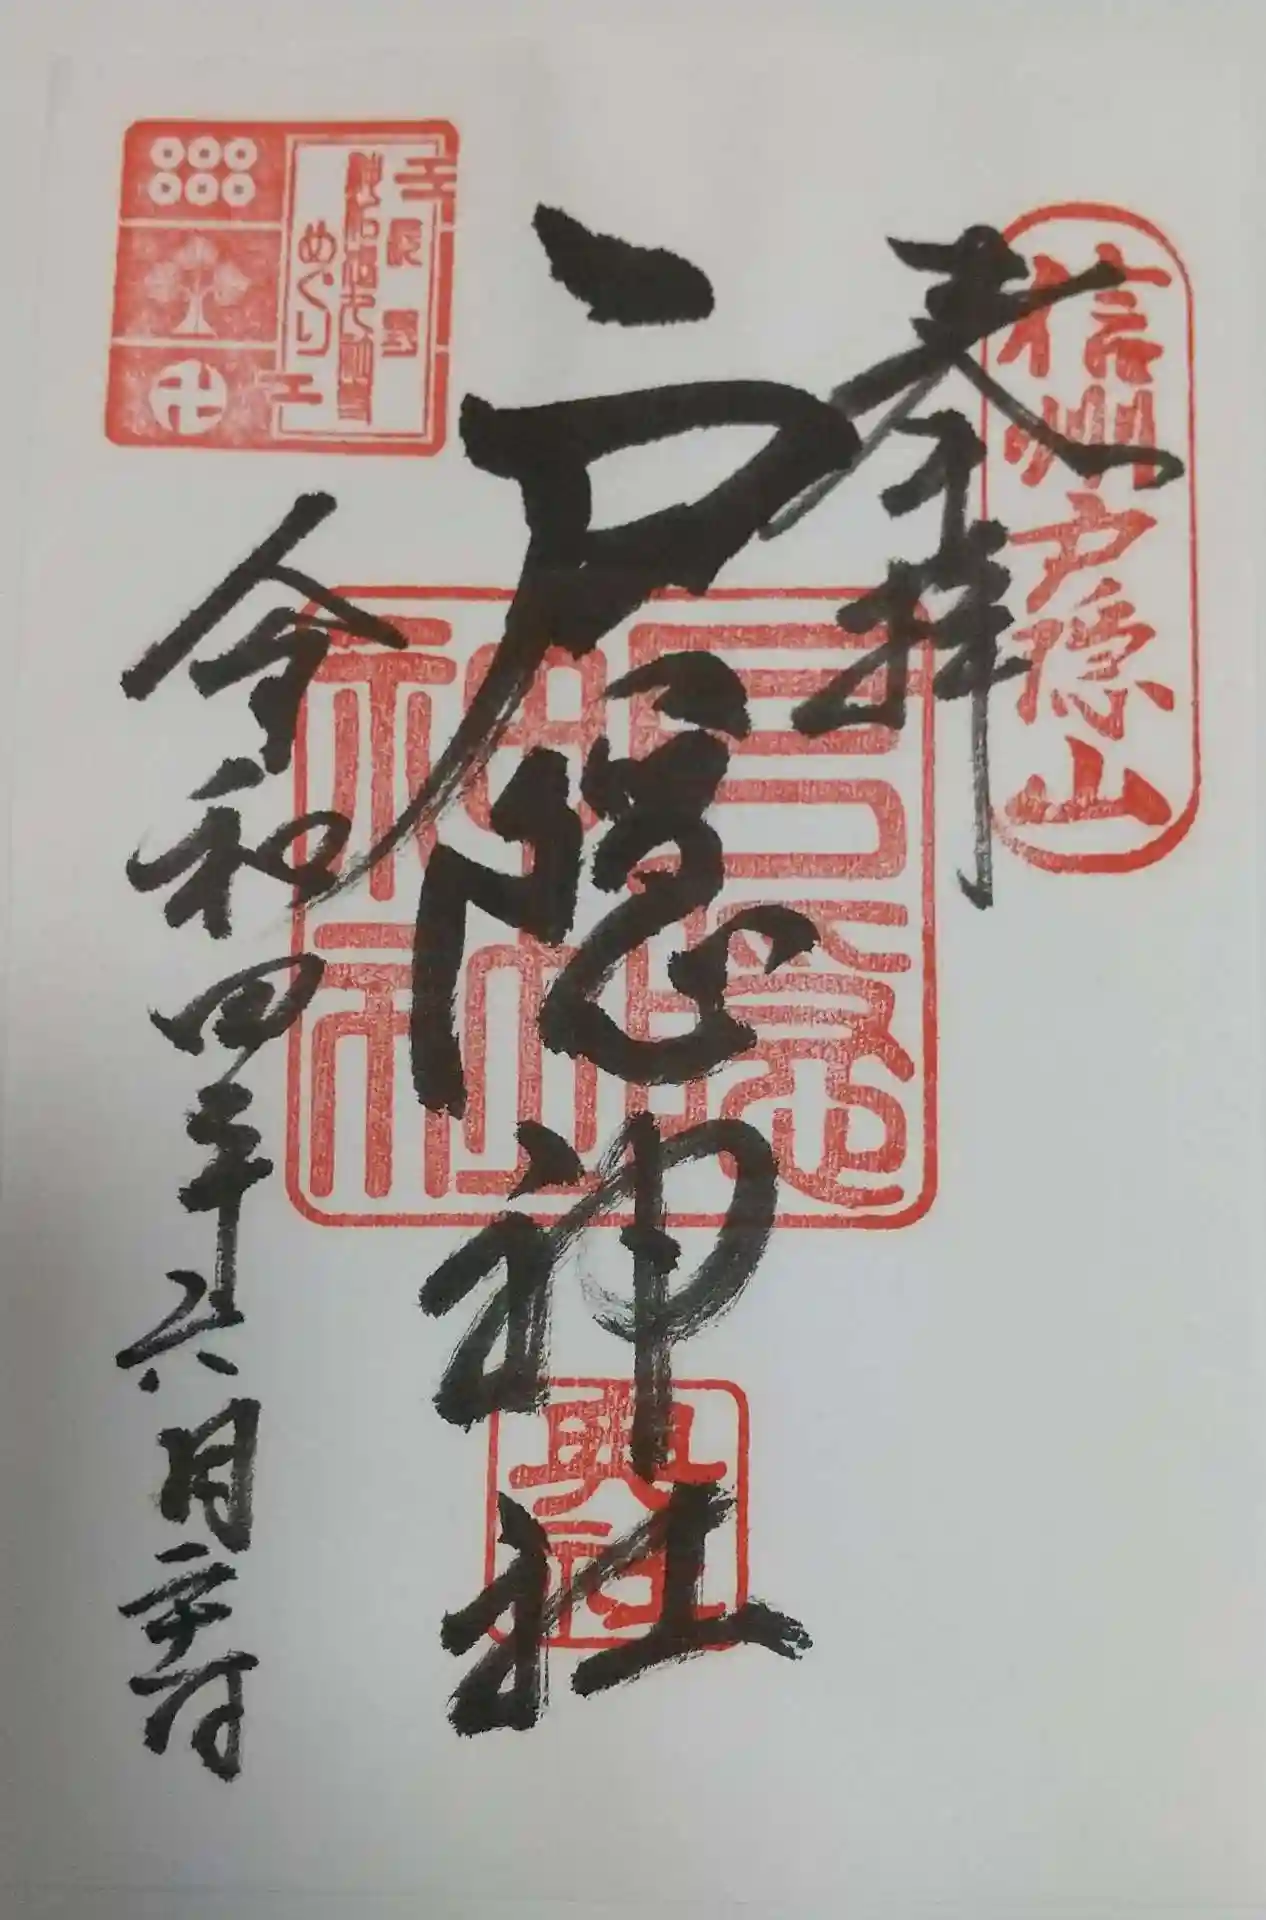 信州戸隠山
奉拝
戸隠神社
戸隠
神社
奥社
令和四年六月
長野
めぐり